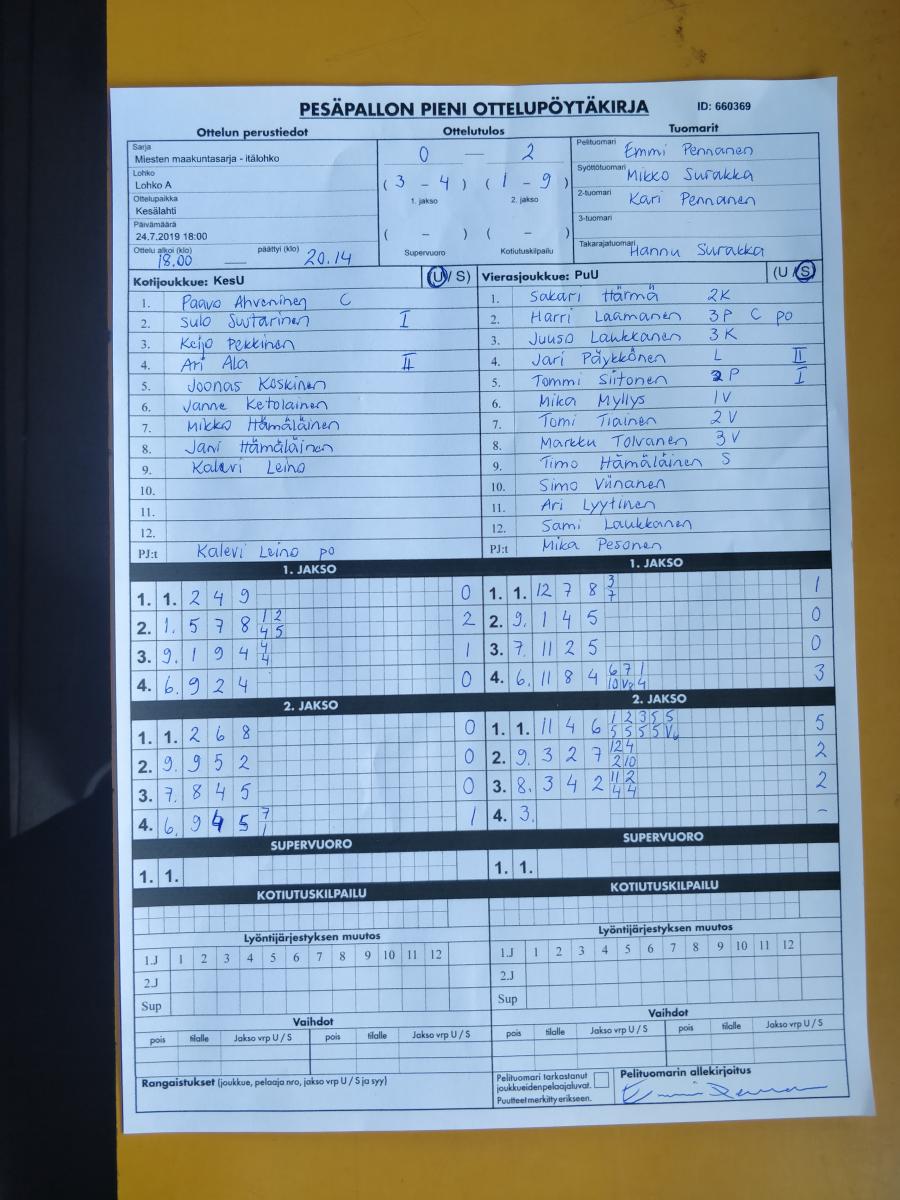 PESÄPALLON PIENI OTTELUPÖYTÄKIRJA ID: 660369
Ottelun perustiedot Ottelutulos Tuomarit
Sarja
Miesten maakuntasarja - itälohko
Lohko
Lohko A
Ottelupaikka
Kesälahti
Päivämäärä
24.7.2019 18:00
Ottelu alkoi (klo) päättyi (klo)
18.00 — 20.14
0 — 2
( 3 - 4 ) ( 1 - 9 )
1. jakso 2. jakso
( - ) ( - )
Supervuoro Kotiutuskilpailu
Pelituomari Emmi Pennanen
Syöttötuomari Mikko Surakka
2-tuomari Kari Pennanen
3-tuomari
Takarajatuomari Hannu Surakka
Kotijoukkue: KesU (U / S)
1. Paavo Ahveninen C
2. Sulo Suutarinen I
3. Keijo Pekkinen
4. Ari Ala II
5. Joonas Koskinen
6. Janne Ketolainen
7. Mikko Hämäläinen
8. Jani Hämäläinen
9. Kalevi Leino
10.
11.
12.
PJ:t Kalevi Leino po
Vierasjoukkue: PuU (U / S)
1. Sakari Härmä 2K
2. Harri Laamanen 3P C po
3. Juuso Laukkanen 3K
4. Jari Päykkönen L II
5. Tommi Siitonen 2P I
6. Mika Myllys 1V
7. Tomi Tiainen 2V
8. Markku Tolvanen 3V
9. Timo Hämäläinen S
10. Simo Viinanen
11. Ari Lyytinen
12. Sami Laukkanen
PJ:t Mika Pesonen
1. JAKSO
1. 1. 2 4 9 0
2. 1. 5 7 8 1 2 2
4 5
3. 9. 1 9 4 4 1
4
4. 6. 9 2 4 0
1. JAKSO
1. 1. 12 7 8 3 1
7
2. 9. 1 4 5 0
3. 7. 11 2 5 0
4. 6. 11 8 4 6 7 1 3
10 4
2. JAKSO
1. 1. 2 6 8 0
2. 9. 9 5 2 0
3. 7. 8 4 5 0
4. 6. 9 4 5 7 1
1
2. JAKSO
1. 1. 11 4 6 1 2 3 5 5 5
5 5 5 5
2. 9. 3 2 7 12 4 2
2 10
3. 8. 3 4 2 11 2 2
4 4
4. 3. -
SUPERVUORO
1. 1.
SUPERVUORO
1. 1.
KOTIUTUSKILPAILU
KOTIUTUSKILPAILU
Lyöntijärjestyksen muutos
1.J 1 2 3 4 5 6 7 8 9 10 11 12
2.J
Sup
Lyöntijärjestyksen muutos
1.J 1 2 3 4 5 6 7 8 9 10 11 12
2.J
Sup
Vaihdot
pois tilalle Jakso vrp U / S pois tilalle Jakso vrp U / S
Vaihdot
pois tilalle Jakso vrp U / S pois tilalle Jakso vrp U / S
Rangaistukset (joukkue, pelaaja nro, jakso vrp U / S ja syy)
Pelituomari tarkastanut
joukkueiden pelaajaluvat.
Puutteet merkitty erikseen.
Pelituomarin allekirjoitus